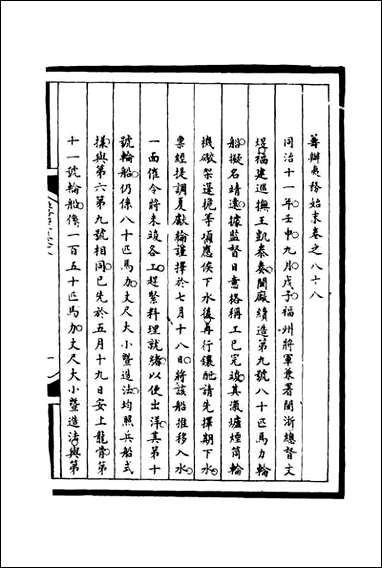 籌辦夷務始末卷之八十八
同治十一年壬申九月戊子福州將軍兼署閩浙總督文
煜福建巡撫王凱泰奏閩廠續造第九號八十匹馬力輪
船擬名靖遠據監督日意格稱工已完竣其漲爐煙筒輪
機礮架蓬桅等項應俟下水後再行鑲配請先擇期下水
票經提調夏獻綸謹擇於七月十八日將該船推移入水
一面催令將未竣各工趕緊料理就緒以便出洋其第十
號輪船仍係八十匹馬力丈尺大小暨造法均照兵船式
樣與第六第九號相同已先於五月十九日安上龍骨第
十一號輪船係一百五十匹馬力丈尺大小暨造法與第